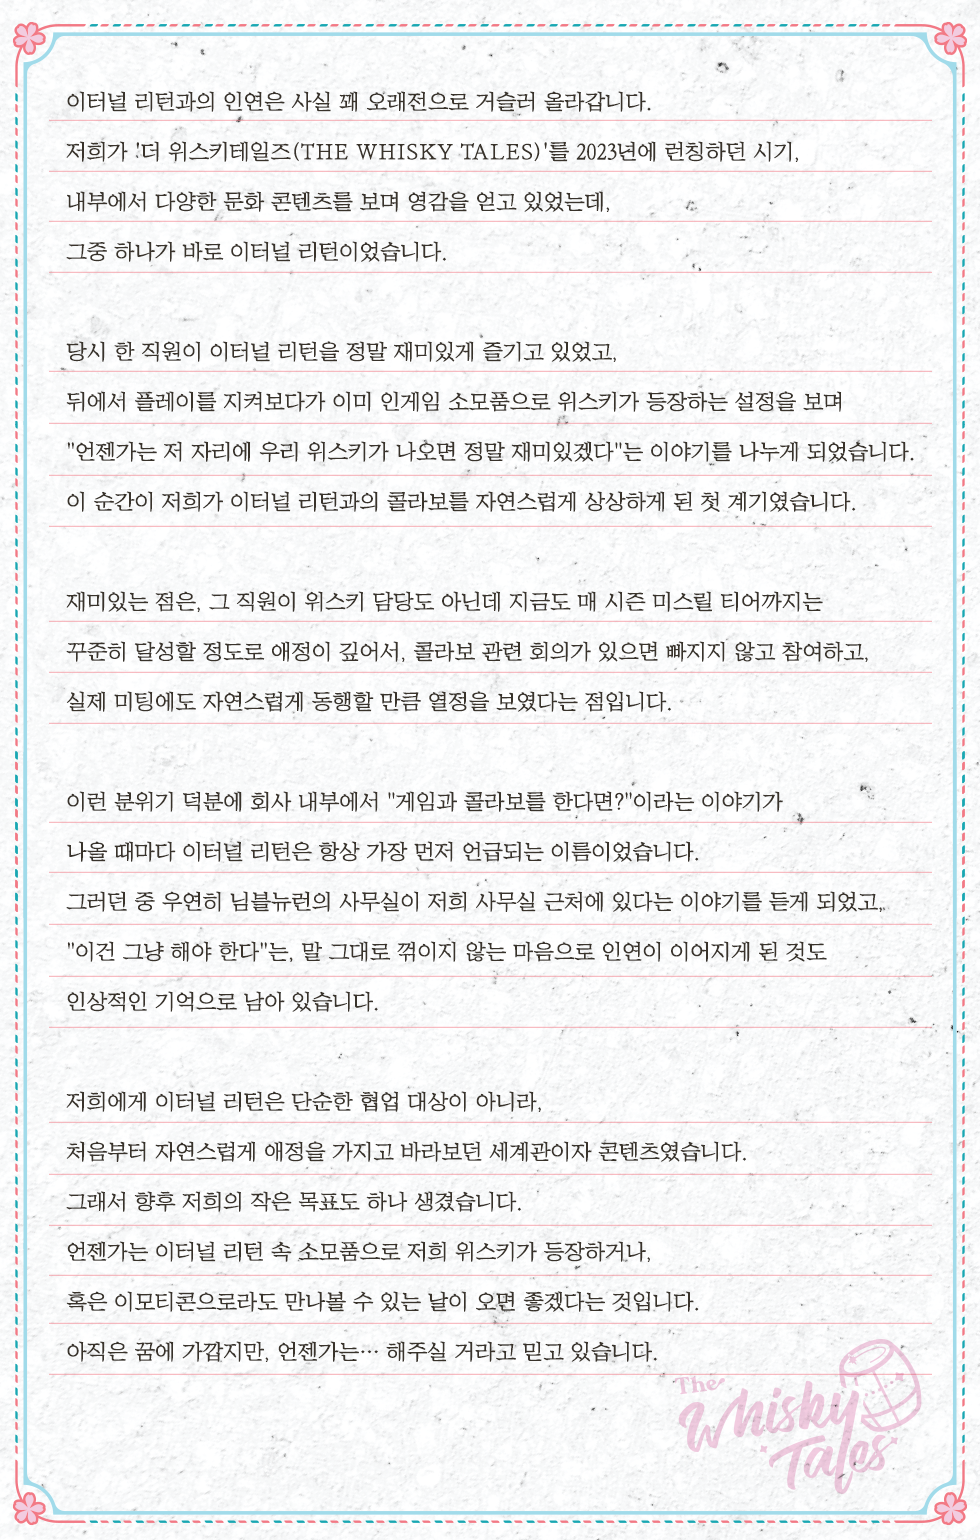 이터널 리턴과의 인연은 사실 꽤 오래전으로 거슬러 올라갑니다.
저희가 '더 위스키테일즈(THE WHISKY TALES)'를 2023년에 런칭하던 시기,
내부에서 다양한 문화 콘텐츠를 보며 영감을 얻고 있었는데,
그중 하나가 바로 이터널 리턴이었습니다.
당시 한 직원이 이터널 리턴을 정말 재미있게 즐기고 있었고,
뒤에서 플레이를 지켜보다가 이미 인게임 소모품으로 위스키가 등장하는 설정을 보며
"언젠가는 저 자리에 우리 위스키가 나오면 정말 재미있겠다"는 이야기를 나누게 되었습니다.
이 순간이 저희가 이터널 리턴과의 콜라보를 자연스럽게 상상하게 된 첫 계기였습니다.
재미있는 점은, 그 직원이 위스키 담당도 아닌데 지금도 매 시즌 미스릴 티어까지는
꾸준히 달성할 정도로 애정이 깊어서, 콜라보 관련 회의가 있으면 빠지지 않고 참여하고,
실제 미팅에도 자연스럽게 동행할 만큼 열정을 보였다는 점입니다.
이런 분위기 덕분에 회사 내부에서 "게임과 콜라보를 한다면?"이라는 이야기가
나올 때마다 이터널 리턴은 항상 가장 먼저 언급되는 이름이었습니다.
그러던 중 우연히 님블뉴런의 사무실이 저희 사무실 근처에 있다는 이야기를 듣게 되었고,
"이건 그냥 해야 한다"는, 말 그대로 꺾이지 않는 마음으로 인연이 이어지게 된 것도
인상적인 기억으로 남아 있습니다.
저희에게 이터널 리턴은 단순한 협업 대상이 아니라,
처음부터 자연스럽게 애정을 가지고 바라보던 세계관이자 콘텐츠였습니다.
그래서 향후 저희의 작은 목표도 하나 생겼습니다.
언젠가는 이터널 리턴 속 소모품으로 저희 위스키가 등장하거나,
혹은 이모티콘으로라도 만나볼 수 있는 날이 오면 좋겠다는 것입니다.
아직은 꿈에 가깝지만, 언젠가는… 해주실 거라고 믿고 있습니다.
The
Whisky
Tales